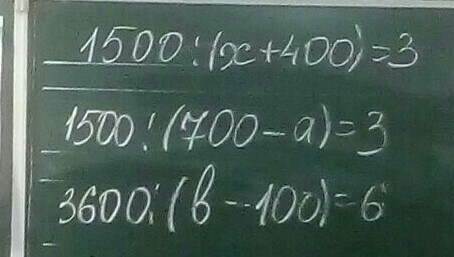 1500:(x+400)=3
1500:(700-a)=3
3600:(в-100)=6